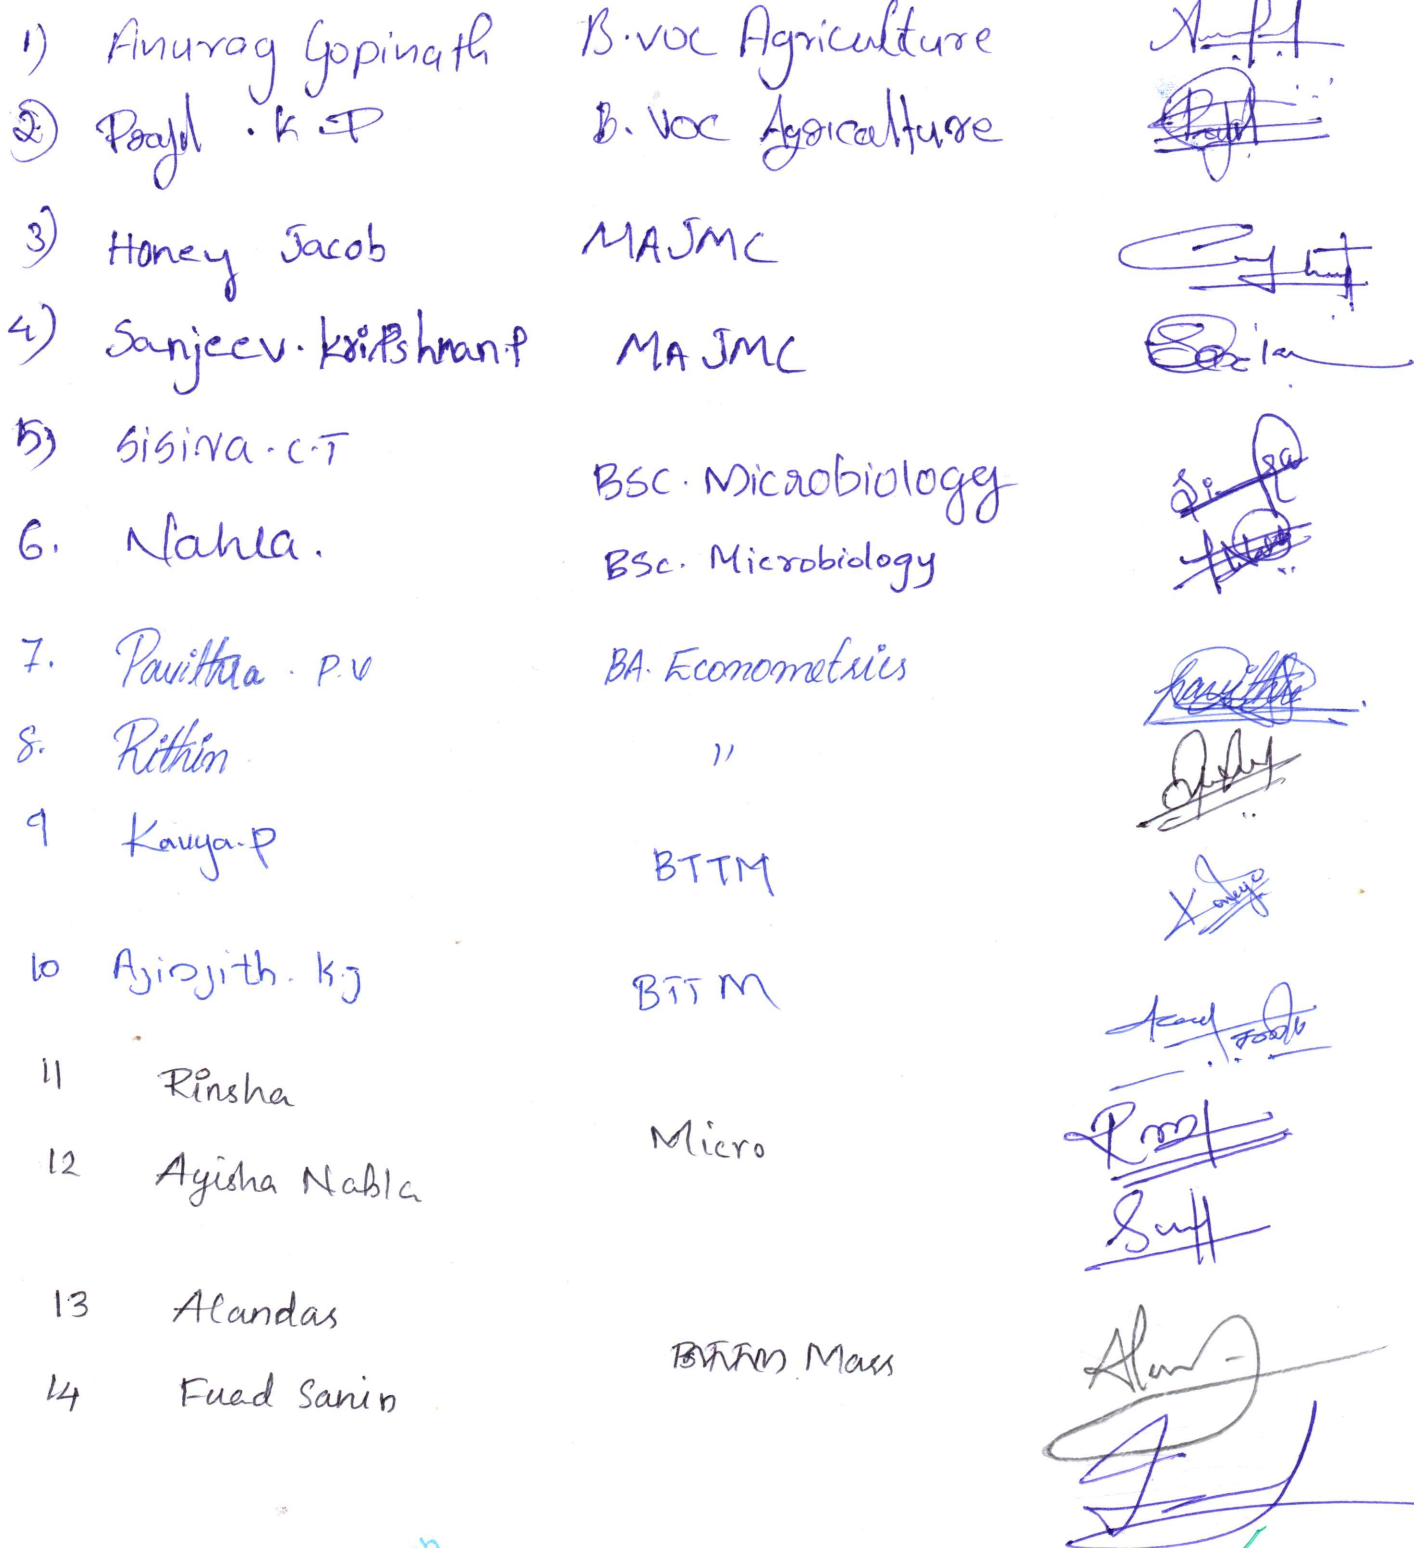 1) Anurag Gopinath B.voc Agriculture
2) Prajil . K . P B. voc Agriculture
3) Honey Jacob MAJMC
4) Sanjeev. Krishnan.P MA JMC
5) Sisira . C.T BSC . Microbiology
6. Nahla . BSc. Microbiology
7. Pavithra . P.V BA. Econometrics
8. Rithin "
9 Kavya.P BTTM
10 K.J BTTM
11 Rinsha
Micro
12 Ayisha Nabla
13 Alandas
Mass
14 Fuad Sanin